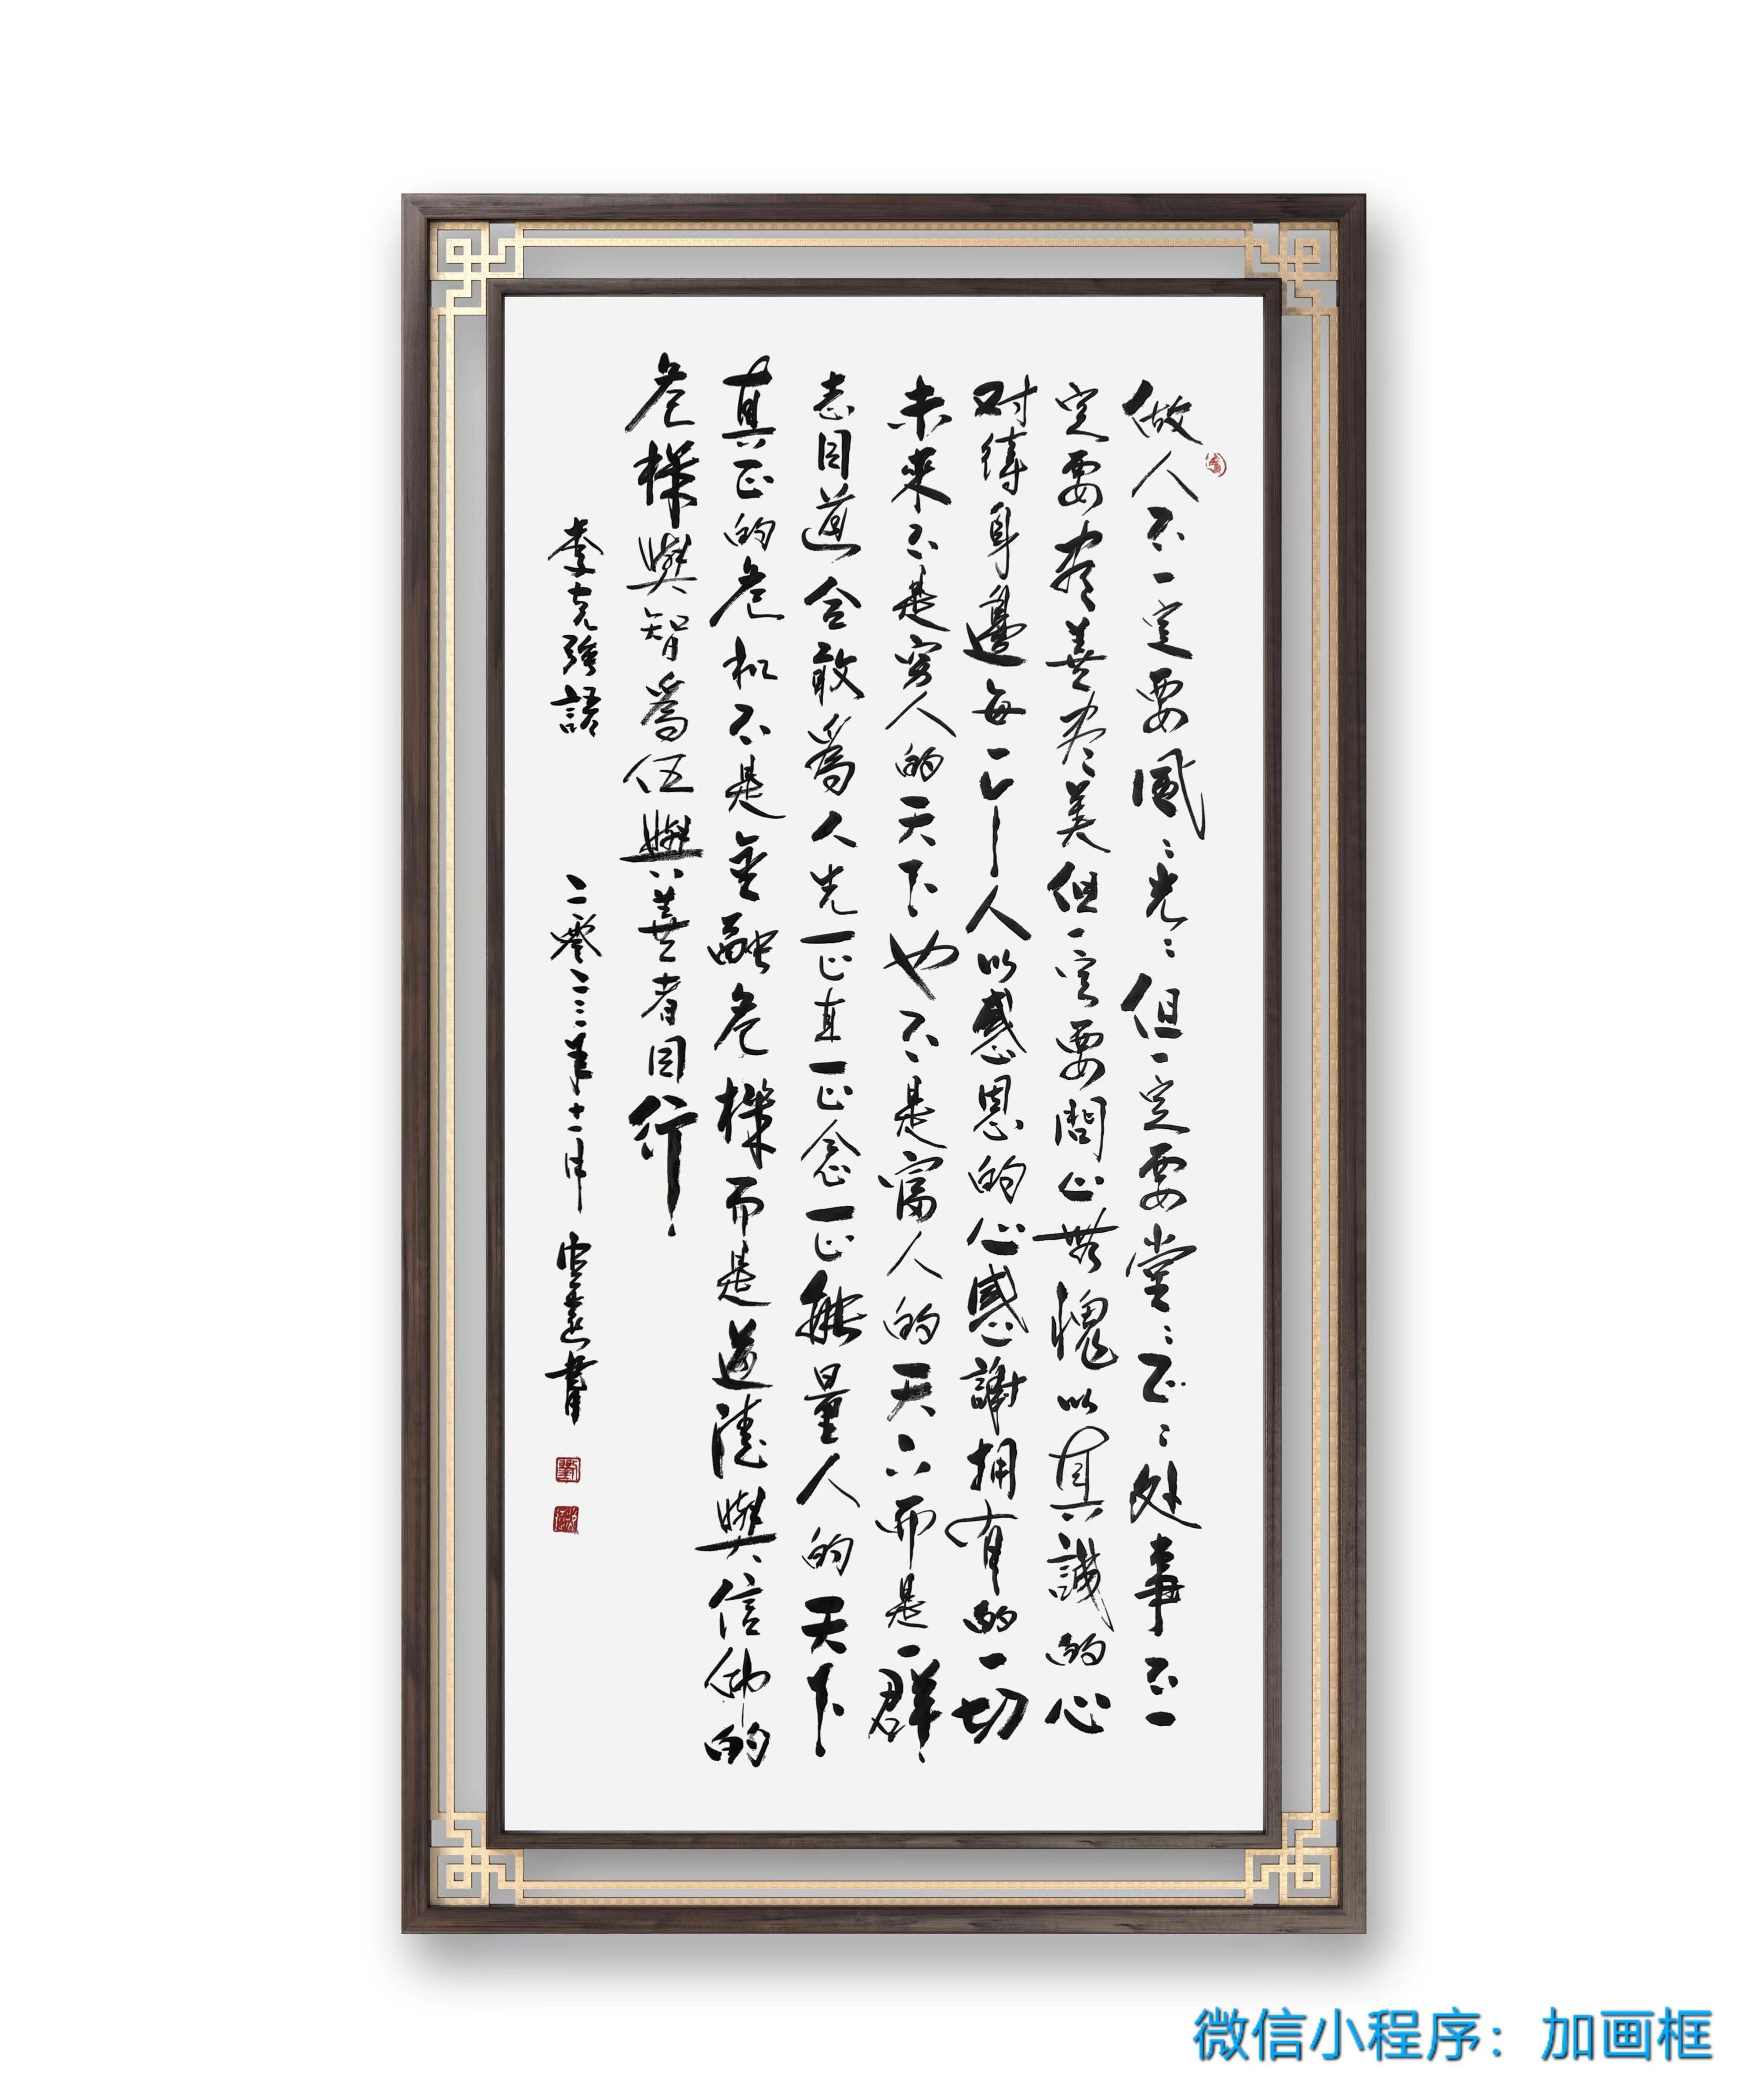 做人不一定要風〻光〻但一定要堂〻正〻处事不一
定要尽善尽美但一定要問心無愧以真誠的心
对待身邊每一个人以感恩的心感謝拥有的一切
未来不是穷人的天下也不是富人的天下而是一群
志同道合敢為人先正直正念正能量人的天下
真正的危机不是金融危機而是道德與信仰的
危機與智為伍與善者同行
李克強語
二零二三年十一月
書
微信小程序：加画框